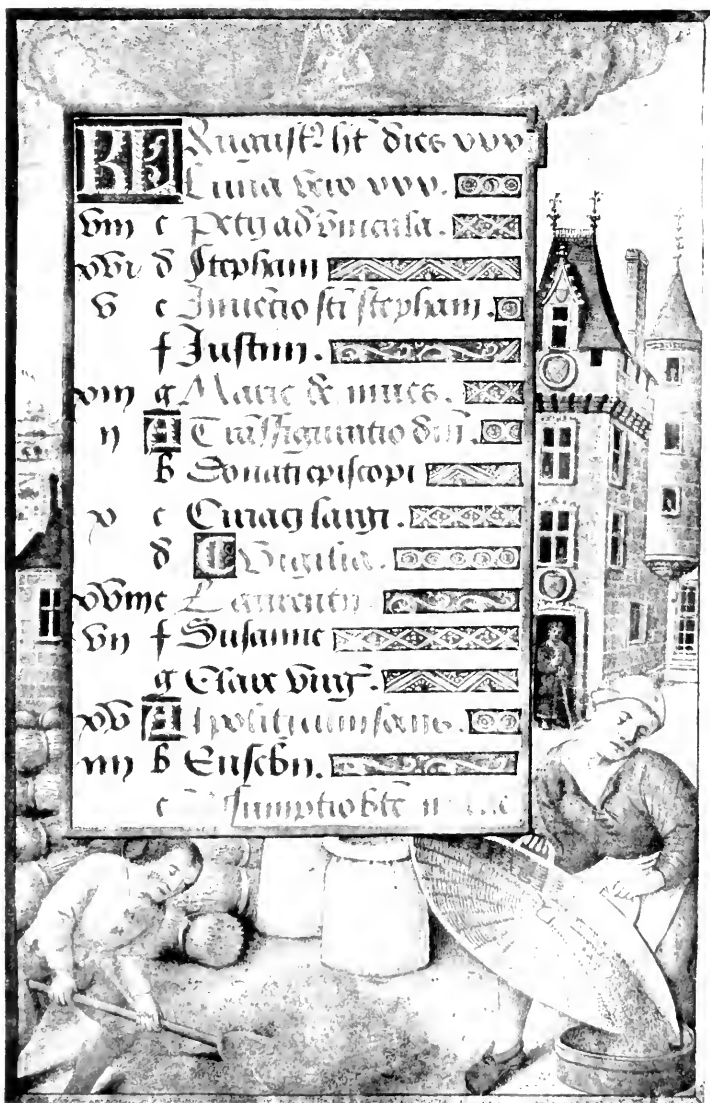 KL August9 ht dies xxx
Luna vero xxx.
viii c Petri ad vincula.
xvi d Stephani
v e Inuẽtio sc̃i stephani.
f Iustini.
xiii g Marie de niues.
ii A Trãsfiguratio dñi.
b Donati episcopi
x c Ciriaci largi.
d Vigilia.
xviii e Laurentii
vii f Susanne
g Clare virg̃.
xv A Ipoliti cum sociis.
iiii b Eusebii.
c Assumptio btẽ